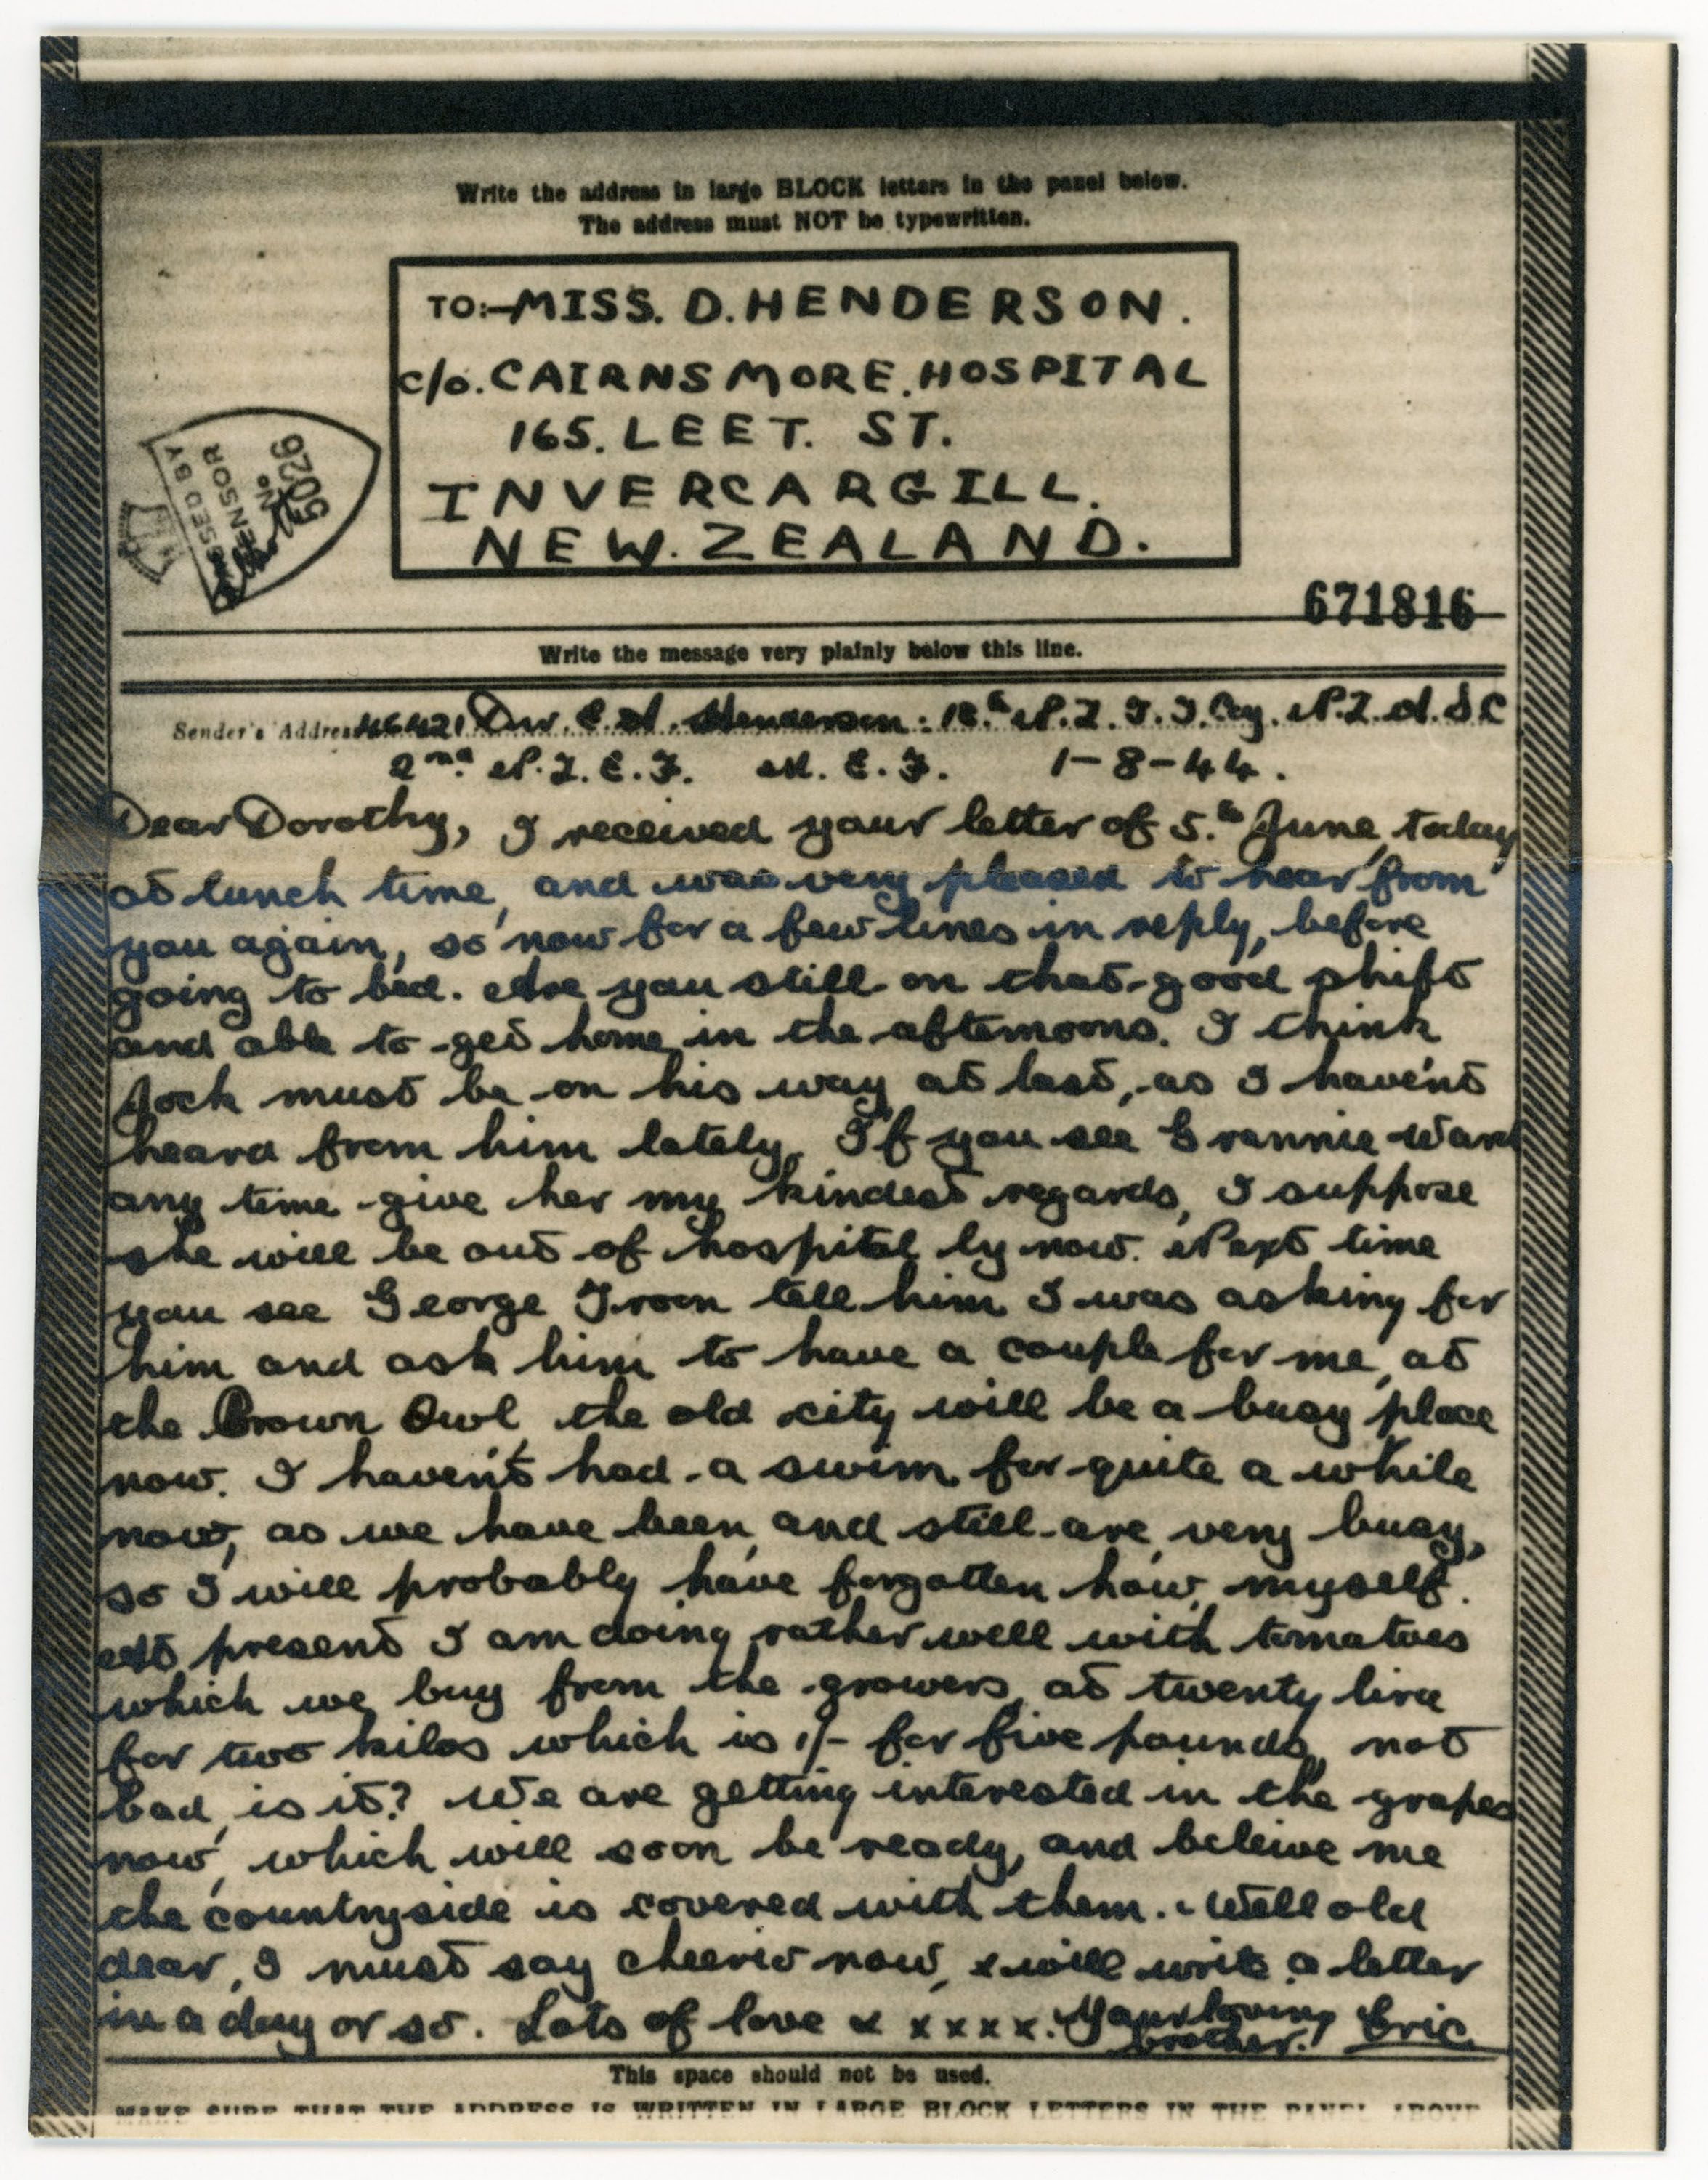 Write the address in large BLOCK letters in the panel below.
The address must NOT be typewritten.
TO:- MISS. D. HENDERSON.
c/o. CAIRNSMORE. HOSPITAL
165. LEET. ST.
INVERCARGILL.
NEW. ZEALAND.
PASSED BY
CENSOR
No
5026
671816
Write the message very plainly below this line.
Sender's Address 46421 Dvr. E. A. Henderson: 18th N.Z. T.T. Coy. N.Z.A.S.C
2nd. N.Z.E.F. M.E.F. 1-8-44.
Dear Dorothy, I received your letter of 5.th June, today
at lunch time, and was very pleased to hear from
you again, so now for a few lines in reply, before
going to bed. Are you still on that good shift
and able to get home in the afternoons. I think
Jock must be on his way at last, as I haven't
heard from him lately. If you see Grannie Ward
any time give her my kindest regards, I suppose
she will be out of hospital by now. Next time
you see George Troon tell him I was asking for
him and ask him to have a couple for me, at
the Brown Owl, the old city will be a busy place
now. I haven't had a swim for quite a while
now, as we have been, and still are, very busy,
so I will probably have forgotten how, myself.
At present I am doing rather well with tomatoes
which we buy from the growers, at twenty lira
for two kilos which is 1/- for five pounds, not
bad, is it? We are getting interested in the grapes
now, which will soon be ready, and beleive me
the countryside is covered with them. Well old
dear, I must say cheerio now, & will write a letter
in a day or so. Lots of love x x x x x. Your loving
brother. Eric.
This space should not be used.
MAKE SURE THAT THE ADDRESS IS WRITTEN IN LARGE BLOCK LETTERS IN THE PANEL ABOVE